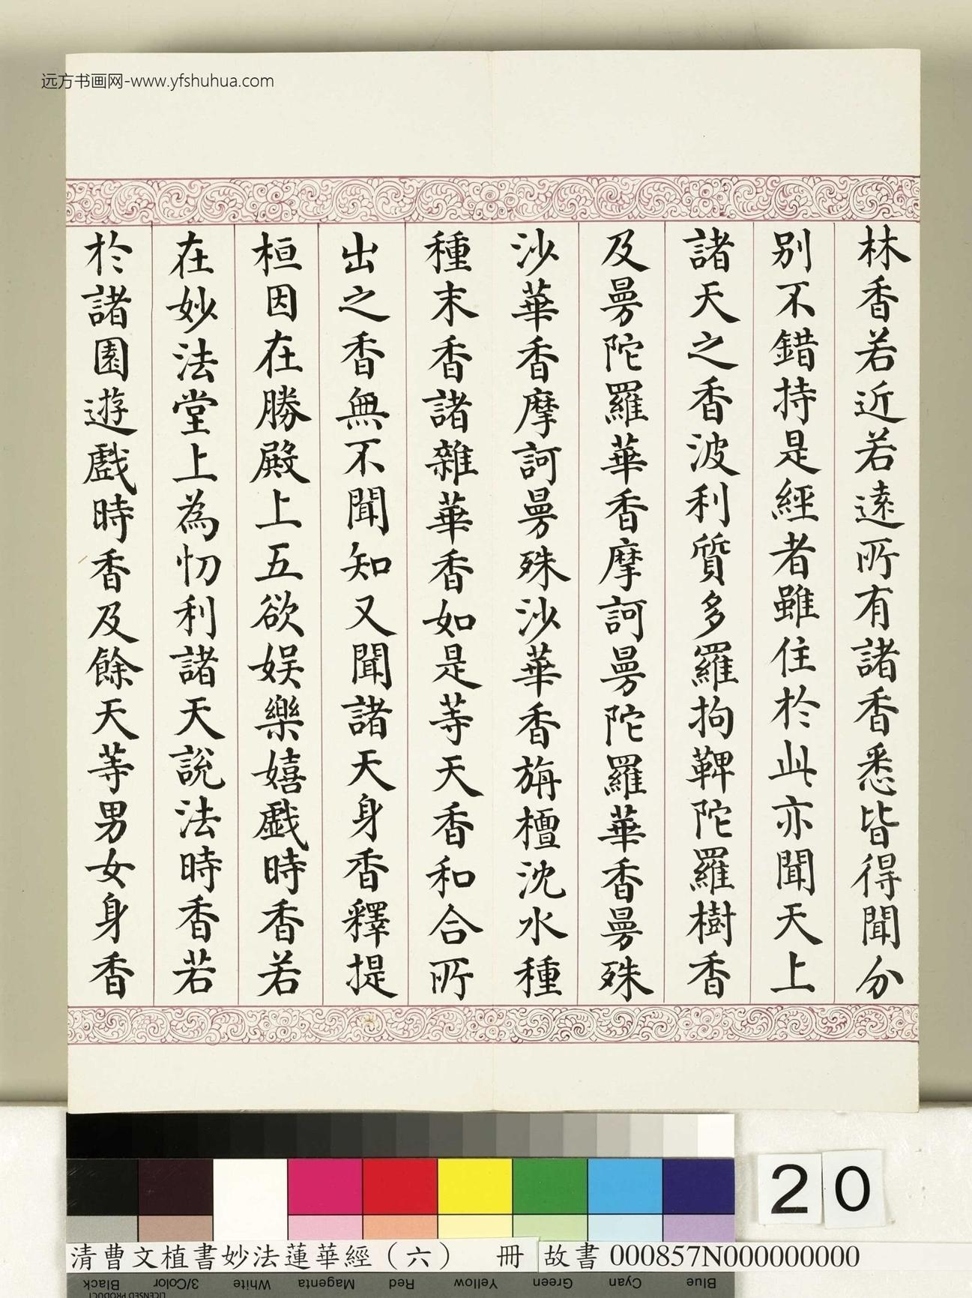 远方书画网-www.yfshuhua.com
林香若近若遠所有諸香悉皆得聞分
别不錯持是經者雖住於此亦聞天上
諸天之香波利質多羅拘鞞陀羅樹香
及曼陀羅華香摩訶曼陀羅華香曼殊
沙華香摩訶曼殊沙華香旃檀沈水種
種末香諸雜華香如是等天香和合所
出之香無不聞知又聞諸天身香釋提
桓因在勝殿上五欲娛樂嬉戲時香若
在妙法堂上為忉利諸天說法時香若
於諸園遊戲時香及餘天等男女身香
20
清曹文植書妙法蓮華經（六） 冊 故書 000857N000000000
Black 3/Color White Magenta Red Yellow Green Cyan Blue
LICENSED PRODUCT